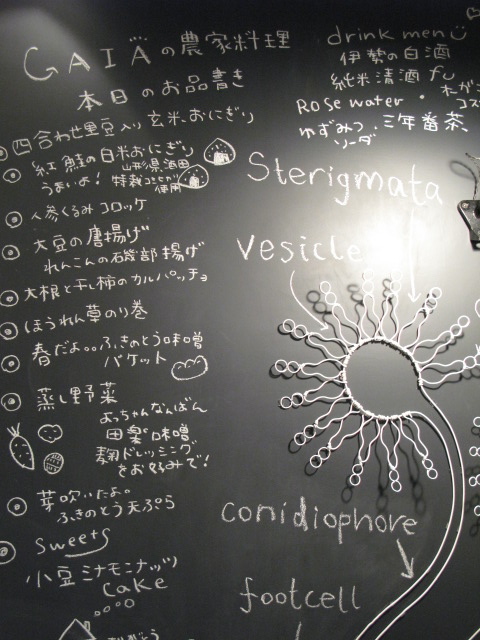 GAIAの農家料理
本日のお品書き
四合わせ黒豆入り玄米おにぎり
紅鮭の白米おにぎり
うまいよ! 山形県酒田
特栽コシヒカリ
使用
人参くるみコロッケ
大豆の唐揚げ
れんこんの石磯部揚げ
大根と干し柿のカルパッチョ
ほうれん草のり巻
春だよ。。ふきのとう味噌
バケット
蒸し野菜
よっちゃんなんばん
田楽味噌
麹ドレッシング
をお好みで!
芽吹いたよ。
ふきのとう天ぷら
sweets
小豆ミナモニナッツ
cake
drink menu
伊勢の白酒
純米清酒 fu
Rose water ・
ゆずみつ
ソーダ
・三年番茶
Sterigmata
vesicle
conidiophore
footcell